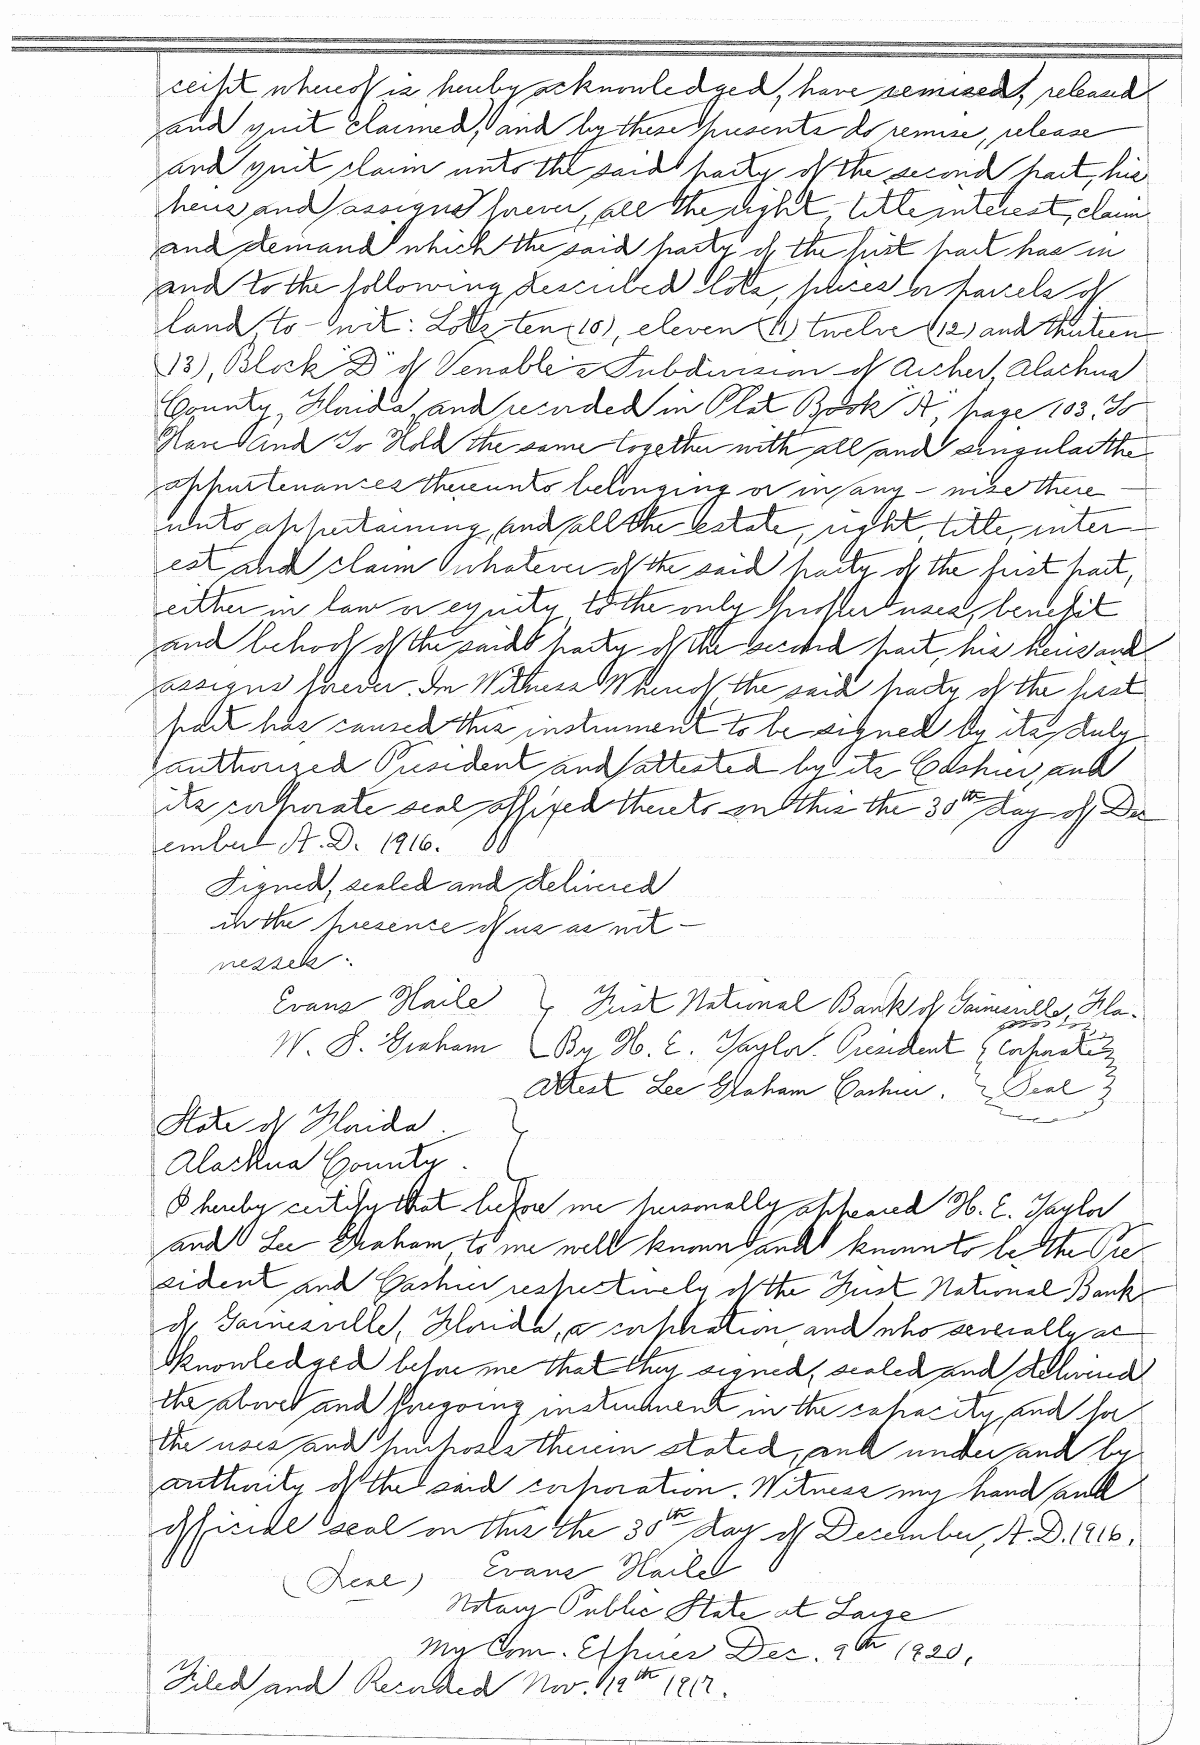 ceipt whereof is hereby acknowledged, have remised, released
and quit claimed, and by these presents do remise, release
and quit claim unto the said party of the second part, his
heirs and assigns forever, all the right, title interest, claim
and demand which the said party of the first part has in
and to the following described lots, pieces or parcels of
land, to-wit: Lots ten (10), eleven (11) twelve (12) and thirteen
(13), Block "D" of Venable's Subdivision of Archer, Alachua
County, Florida, and recorded in Plat Book "A", page 103. To
Have And To Hold the same together with all and singular the
appurtenances thereunto belonging or in any-wise there-
unto appertaining, and all the estate, right, title, inter-
est and claim whatever of the said party of the first part,
either in law or equity, to the only proper uses, benefit
and behoof of the said party of the second part, his heirs and
assigns forever. In Witness Whereof, the said party of the first
part has caused this instrument to be signed by its duly
authorized President and attested by its Cashier, and
its corporate seal affixed thereto on this the 30th day of Dec-
ember A.D. 1916.
Signed, sealed and delivered
in the presence of us as wit-
nesses:
Evans Haile } First National Bank of Gainesville, Fla.
W. S. Graham { By H. E. Taylor. President { Corporate }
Attest Lee Graham Cashier. { Seal }
State of Florida. }
Alachua County.
I hereby certify that before me personally appeared H. E. Taylor
and Lee Graham, to me well known and known to be the Pre-
sident and Cashier respectively of the First National Bank
of Gainesville, Florida, a corporation, and who severally ac-
knowledged before me that they signed, sealed and delivered
the above and foregoing instrument in the capacity, and for
the uses and purposes therein stated, and under and by
authority of the said corporation. Witness my hand and
official seal on this the 30th day of December, A.D. 1916.
(Seal) Evans Haile
Notary Public State at Large
My Com. Expires Dec. 9th 1920.
Filed and Recorded Nov. 19th 1917.